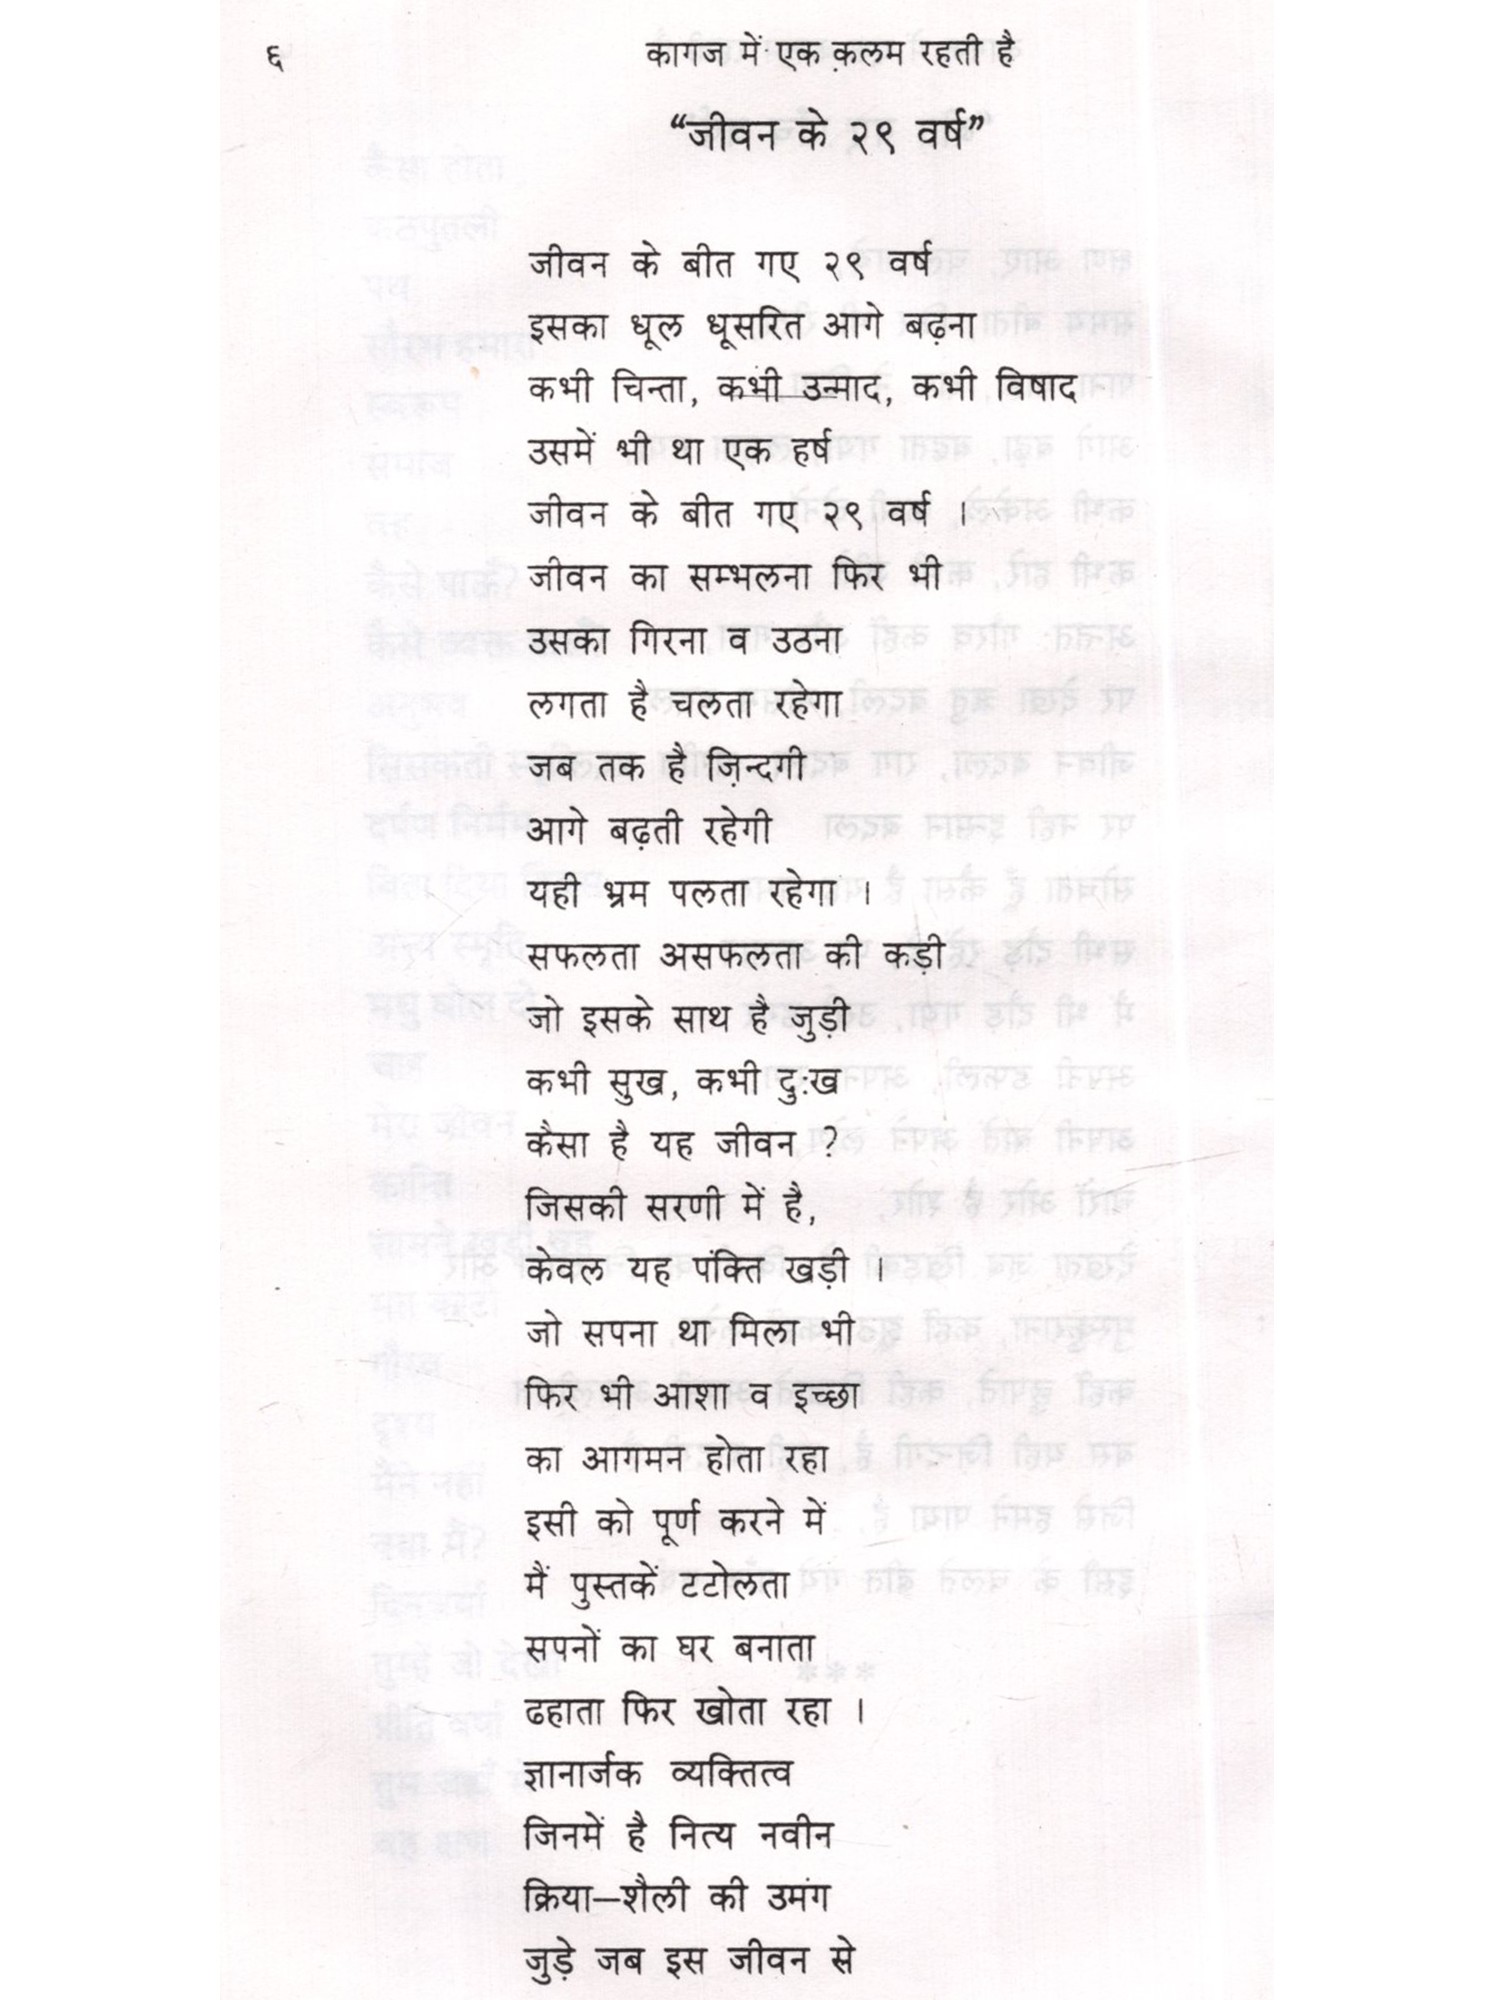 ६ कागज में एक क़लम रहती है
“जीवन के २९ वर्ष”
जीवन के बीत गए २९ वर्ष
इसका धूल धूसरित आगे बढ़ना
कभी चिन्ता, कभी उन्माद, कभी विषाद
उसमें भी था एक हर्ष
जीवन के बीत गए २९ वर्ष ।
जीवन का सम्भलना फिर भी
उसका गिरना व उठना
लगता है चलता रहेगा
जब तक है ज़िन्दगी
आगे बढ़ती रहेगी
यही भ्रम पलता रहेगा ।
सफलता असफलता की कड़ी
जो इसके साथ है जुड़ी
कभी सुख, कभी दुःख
कैसा है यह जीवन ?
जिसकी सरणी में है,
केवल यह पंक्ति खड़ी ।
जो सपना था मिला भी
फिर भी आशा व इच्छा
का आगमन होता रहा
इसी को पूर्ण करने में
मैं पुस्तकें टटोलता
सपनों का घर बनाता
ढहाता फिर खोता रहा ।
ज्ञानार्जक व्यक्तित्व
जिनमें है नित्य नवीन
क्रिया–शैली की उमंग
जुड़े जब इस जीवन से